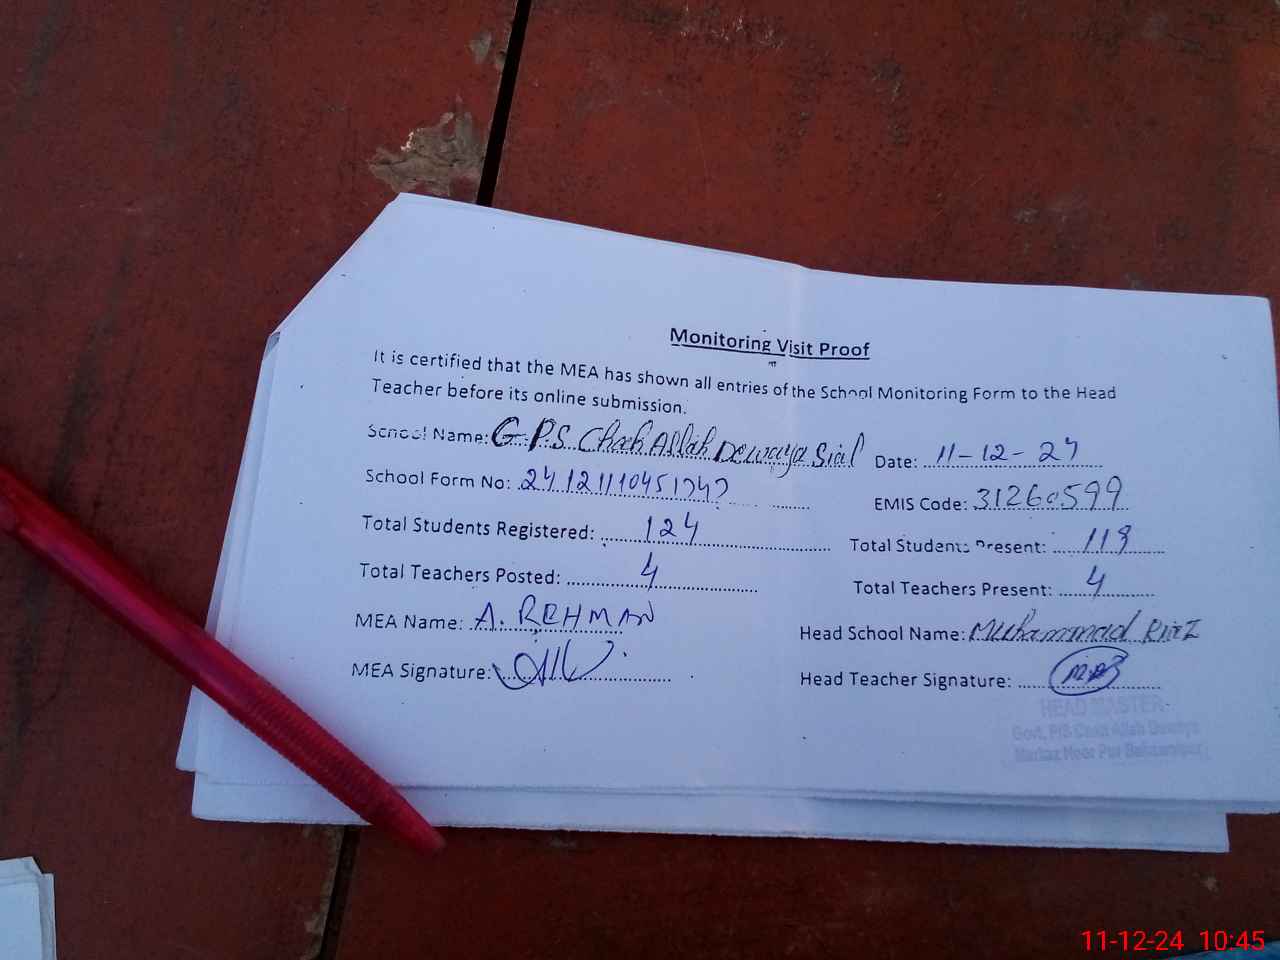 Monitoring Visit Proof
It is certified that the MEA has shown all entries of the School Monitoring Form to the Head
Teacher before its online submission.
School Name: G.P.S Chah Allah Dewaya Sial Date: 11-12-24
School Form No: EMIS Code: 31260599
Total Students Registered: 124 Total Students Present: 119
Total Teachers Posted: 4 Total Teachers Present: 4
MEA Name: A. REHMAN Head School Name: Muhammad Riaz
MEA Signature: Head Teacher Signature:
HEAD MASTER
Govt. P/S Chah Allah Dewaya
Markaz Noor Pur
11-12-24 10:45